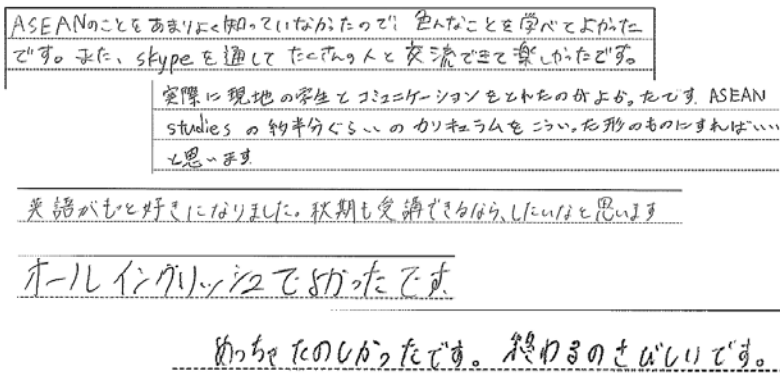 ASEANのことをあまりよく知っていなかったので、色んなことを学べてよかった
です。また、skypeを通してたくさんの人と交流できて楽しかったです。
実際に現地の学生とコミュニケーションをとれたのがよかったです。ASEAN
studiesの約半分ぐらいのカリキュラムをこういった形のものにすればいい
と思います
英語がもっと好きになりました。秋期も受講できるなら、したいなと思います
オールイングリッシュでよかったです。
めっちゃたのしかったです。終わるのさびしいです。